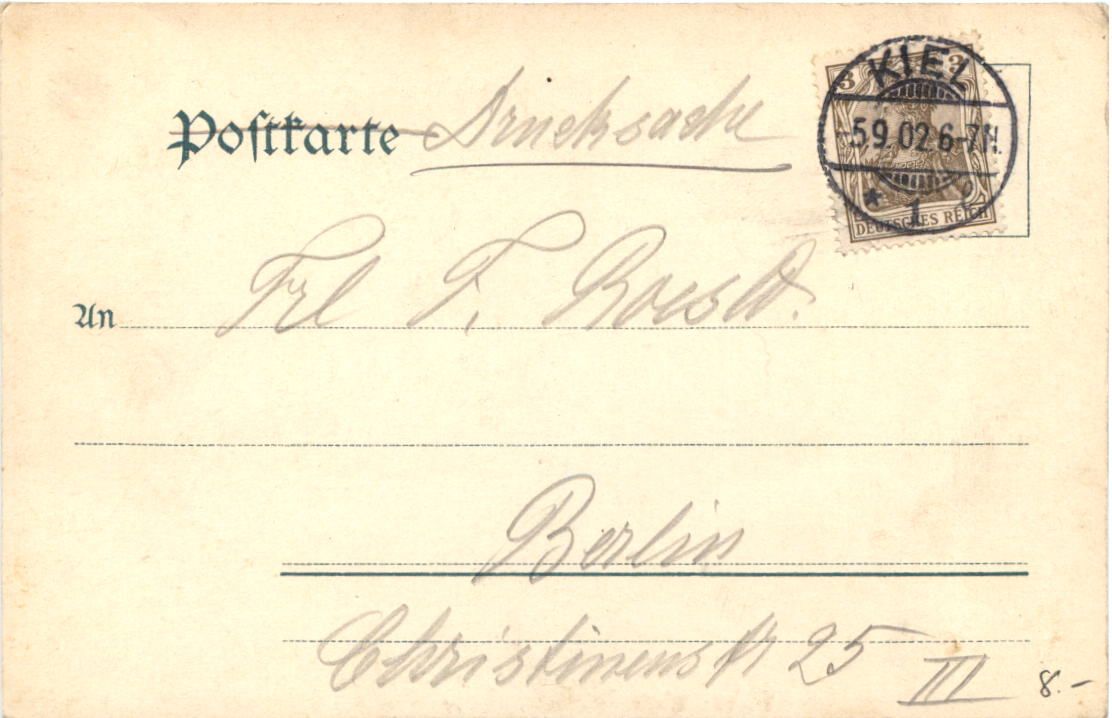 Postkarte Drucksache
3 3
KIEL
5.9.02.6-7N.
* 1
DEUTSCHES REICH
An Frl F.
Berlin
Christinenstr 25 III
8.-